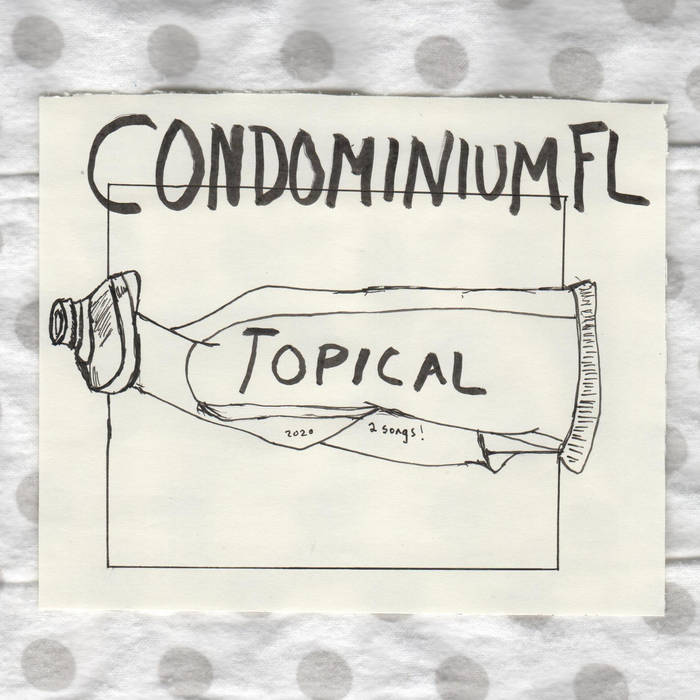 CONDOMINIUM FL
TOPICAL
2020 2 songs!